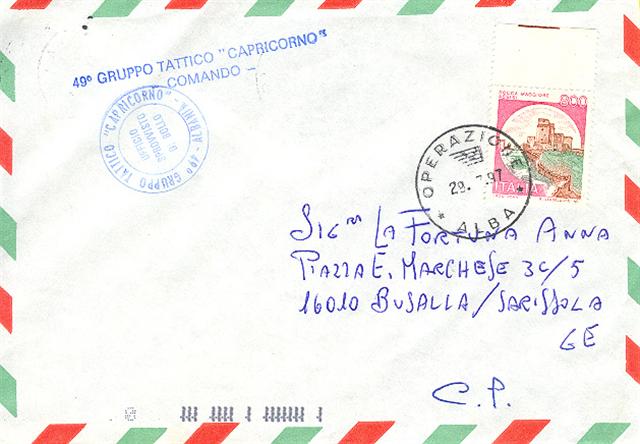 49º GRUPPO TATTICO "CAPRICORNO"
- COMANDO -
ALBANIA - 49º GRUPPO TATTICO "CAPRICORNO"
UFFICIO
SPROVVISTO
D. BOLLO
ROCCA MAGGIORE
ASSISI
800
ITALIA
OPERAZIONE
29. 7.97
* ALBA *
SIG.RA LA FORTUNA ANNA
PIAZZA E. MARCHESE 3C/5
16010 BUSALLA/SARISSOLA
GE
C.P.